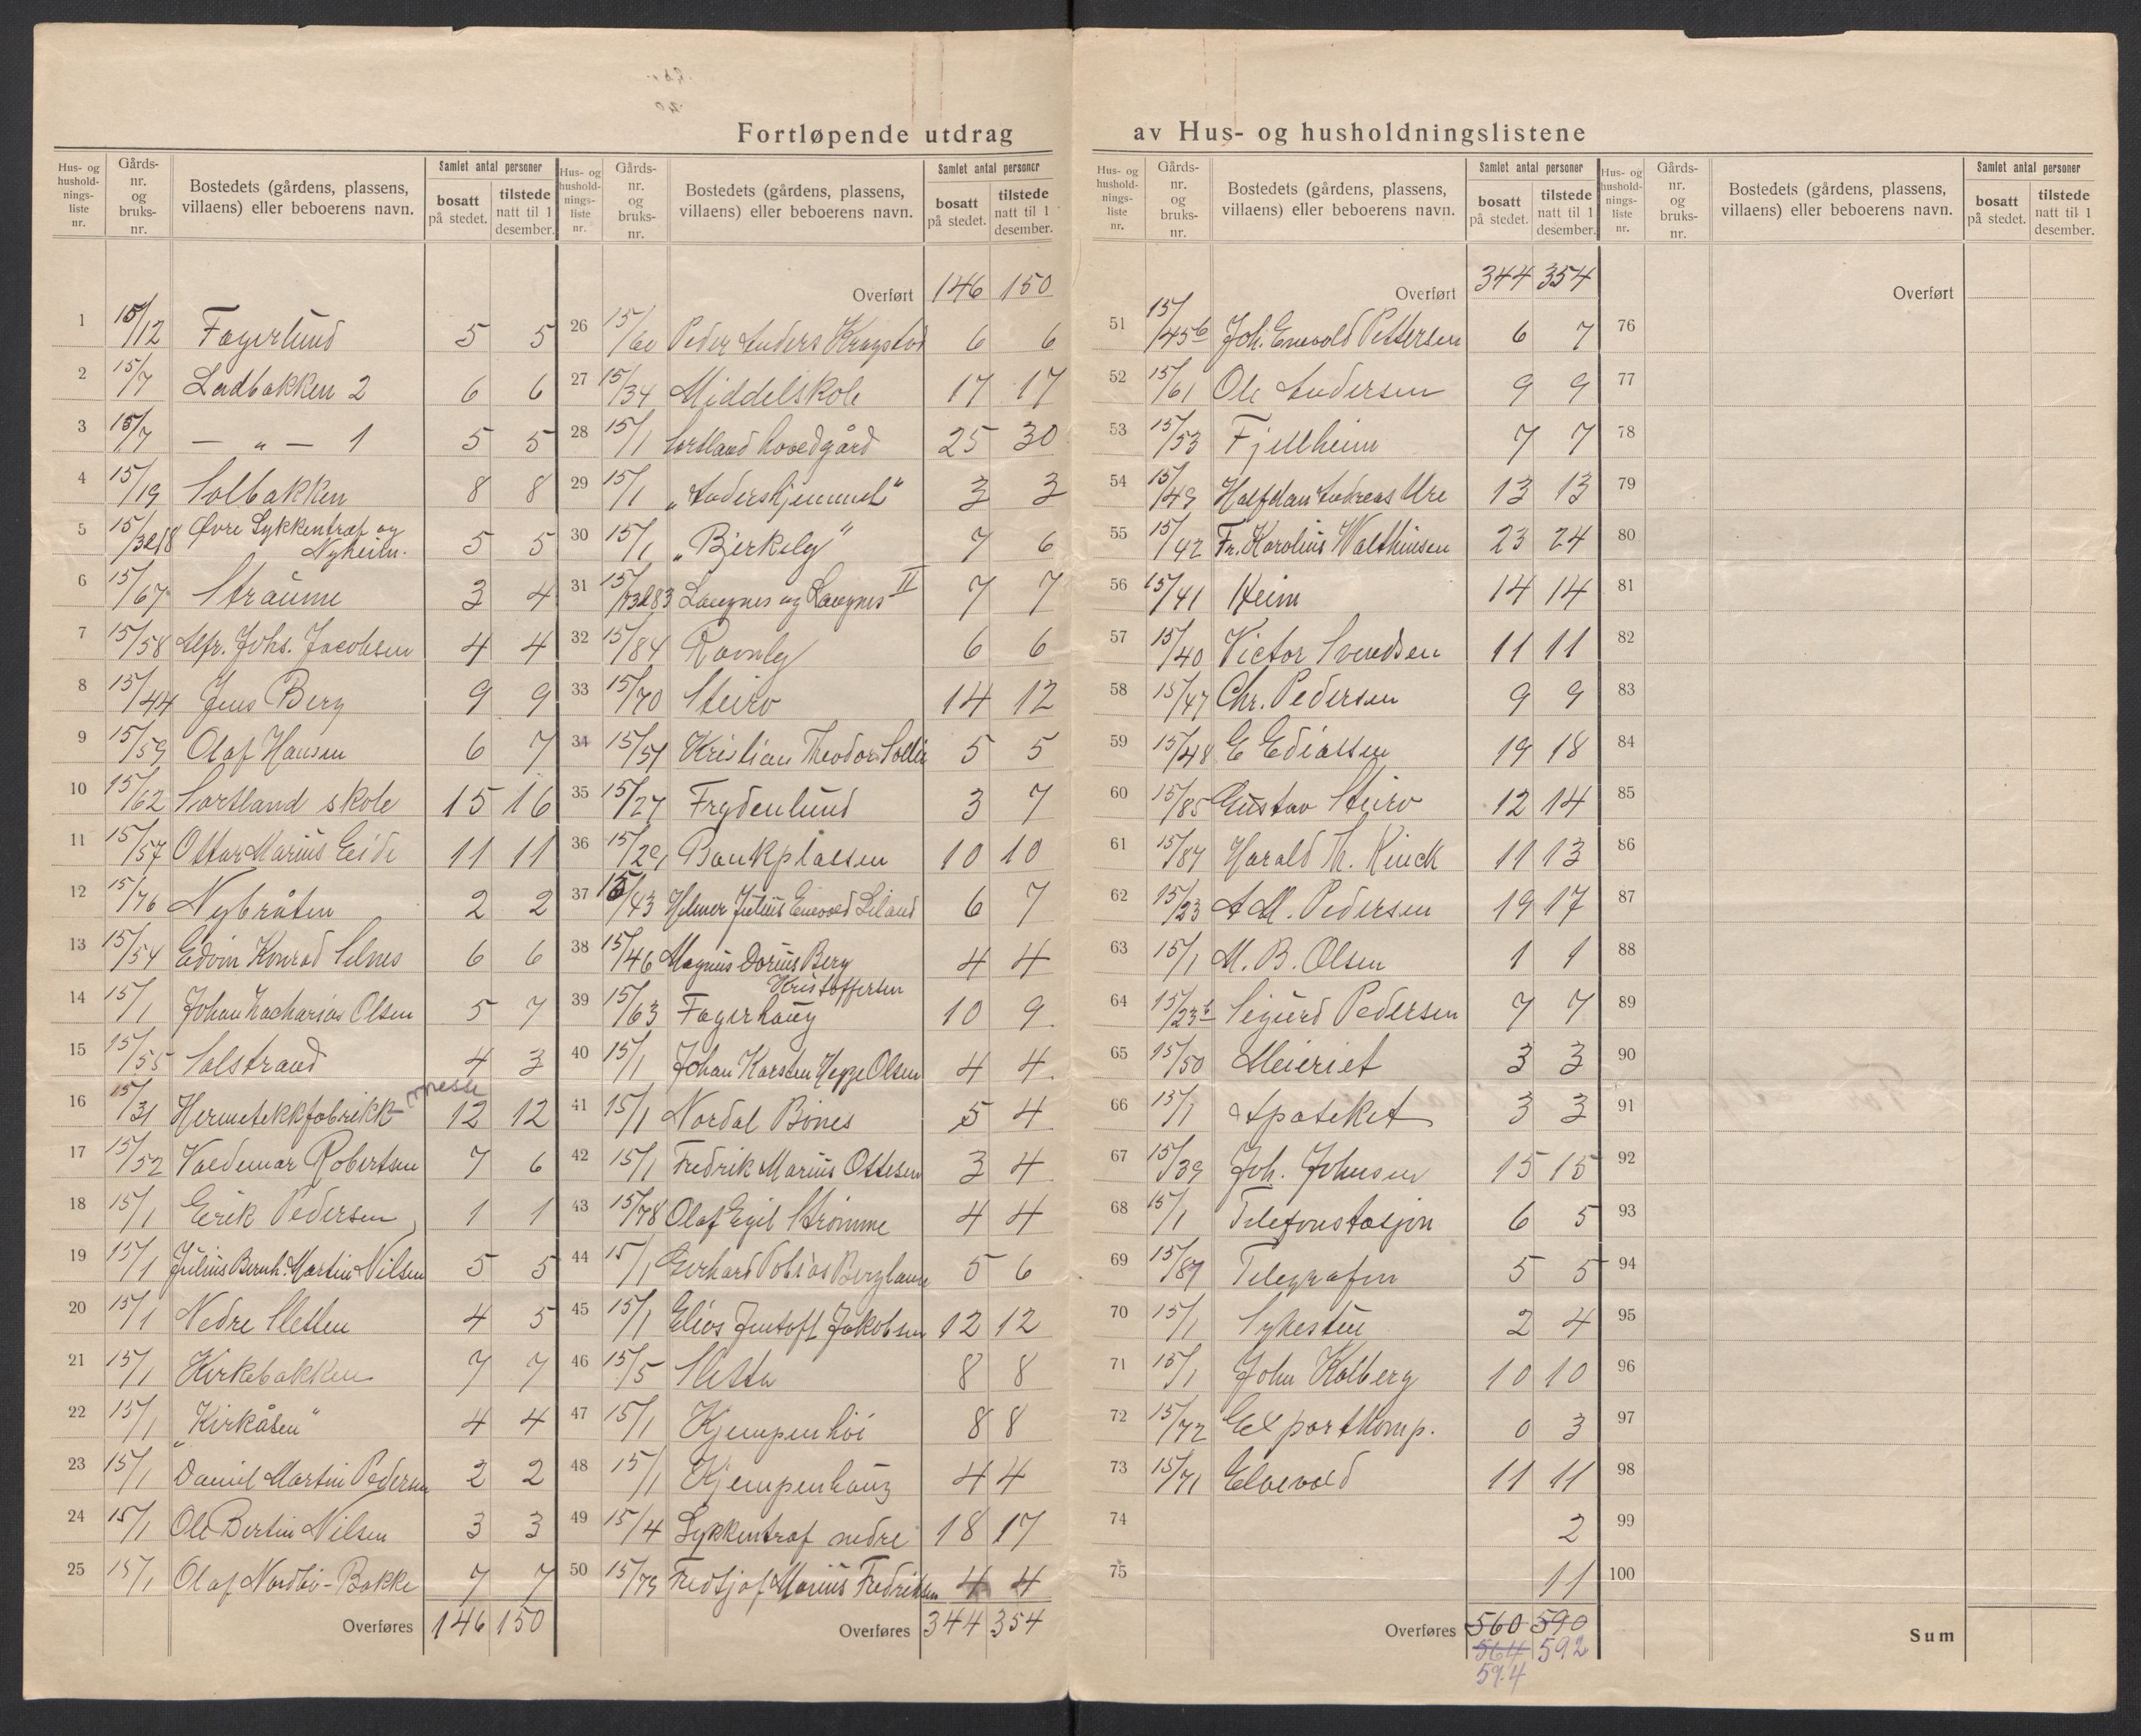 Fortløpende utdrag av Hus- og husholdningslistene
Hus- og husholdnings-liste nr. | Gårds-nr. og bruks-nr. | Bostedets (gårdens, plassens, villaens) eller beboerens navn. | Samlet antal personer | bosatt på stedet. | tilstede natt til 1 desember.
1 15/12 Fagerlund 5 5
2 15/7 Ladbakken 2 6 6
3 15/7 — „ — 1 5 5
4 15/19 Solbakken 8 8
5 15/3 18 Øvre Lykkentref og
Nyheim. 5 5
6 15/67 Straume 3 4
7 15/58 Alfr. Johs. Jacobsen 4 4
8 15/44 Jens Berg 9 9
9 15/59 Olaf Hansen 6 7
10 15/62 Sortland skole 15 16
11 15/57 Ottar Marius Eide 11 11
12 15/76 Nybråten 2 2
13 15/54 Edvin Konrad Selnes 6 6
14 15/1 Johan Zacharias Olsen 5 7
15 15/55 Solstrand 4 3
16 15/31 Hermetikkfabrikk messe 12 12
17 15/52 Valdemar Robertsen 7 6
18 15/1 Eerik Pedersen 1 1
19 15/1 Julius Bernh. Martin Nilsen 5 5
20 15/1 Nedre Sletten 4 5
21 15/1 Kirkebakken 7 7
22 15/1 „Kirkåsen" 4 4
23 15/1 Daniel Martin Pedersen 2 2
24 15/1 Ole Bertin Nilsen 3 3
25 15/1 Olaf Nordbö-Bakke 7 7
Overføres 146 150
Hus- og husholdnings-liste nr. | Gårds-nr. og bruks-nr. | Bostedets (gårdens, plassens, villaens) eller beboerens navn. | Samlet antal personer | bosatt på stedet. | tilstede natt til 1 desember.
Overført 146 150
26 15/60 Peder Anders Kragstad 6 6
27 15/34 Middelskole 17 17
28 15/1 Sortland hovedgård 25 30
29 15/1 „Andershjemmet" 3 3
30 15/1 „Bjerkely" 7 6
31 15/ 83 Langnes og Langnes II 7 7
32 15/84 Ravnly 6 6
33 15/70 Steiro 14 12
34 15/51 Kristian Theodor Sollie 5 5
35 15/27 Frydenlund 3 7
36 15/29 Bankplassen 10 10
37 15/43 Helmer Julius Enevold Liland 6 7
38 15/46 Magnus Dorius Berg
Kristoffersen 4 4
39 15/63 Fagerhaug 10 9
40 15/1 Johan Karsten Heppe Olsen 4 4
41 15/1 Nordal Bönes 5 4
42 15/1 Fredrik Marius Ottesen 3 4
43 15/78 Olaf Egil Strömme 4 4
44 15/1 Gerhard Tobias Bergland 5 6
45 15/1 Elias Jentoft Jakobsen 12 12
46 15/5 Sletta 8 8
47 15/1 Kjempenhöi 8 8
48 15/1 Kjempenhaug 4 4
49 15/4 Lykkentref nedre 18 17
50 15/79 Fredtjof Marius Fredriksen 4 4
Overføres 344 354
Hus- og husholdnings-liste nr. | Gårds-nr. og bruks-nr. | Bostedets (gårdens, plassens, villaens) eller beboerens navn. | Samlet antal personer | bosatt på stedet. | tilstede natt til 1 desember.
Overført 344 354
51 15/45b Joh. Enevold Pettersen 6 7
52 15/61 Ole Andersen 9 9
53 15/53 Fjellheim 7 7
54 15/49 Halfdan Andreas Ure 13 13
55 15/42 Fr. Karolius Walthinsen 23 24
56 15/41 Heim 14 14
57 15/40 Victor Svendsen 11 11
58 15/47 Chr. Pedersen 9 9
59 15/48 E Ediassen 19 18
60 15/85 Gustav Steiro 12 14
61 15/87 Harald Th. Kinck 11 13
62 15/23 A M. Pedersen 19 17
63 15/1 M. B. Olsen 1 1
64 15/23b Sigurd Pedersen 7 7
65 15/50 Meieriet 3 3
66 15/1 Apoteket 3 3
67 15/39 Joh. Johnsen 15 15
68 15/1 Telefonstasjon 6 5
69 15/89 Telegrafen 5 5
70 15/1 Sykesten 2 4
71 15/1 John Kolberg 10 10
72 15/72 Exportkomp. 0 3
73 15/71 Elvevold 11 11
74 2
75 11
Overføres 560 590
564 592
594
Hus- og husholdnings-liste nr. | Gårds-nr. og bruks-nr. | Bostedets (gårdens, plassens, villaens) eller beboerens navn. | Samlet antal personer | bosatt på stedet. | tilstede natt til 1 desember.
Overført
76
77
78
79
80
81
82
83
84
85
86
87
88
89
90
91
92
93
94
95
96
97
98
99
100
Sum